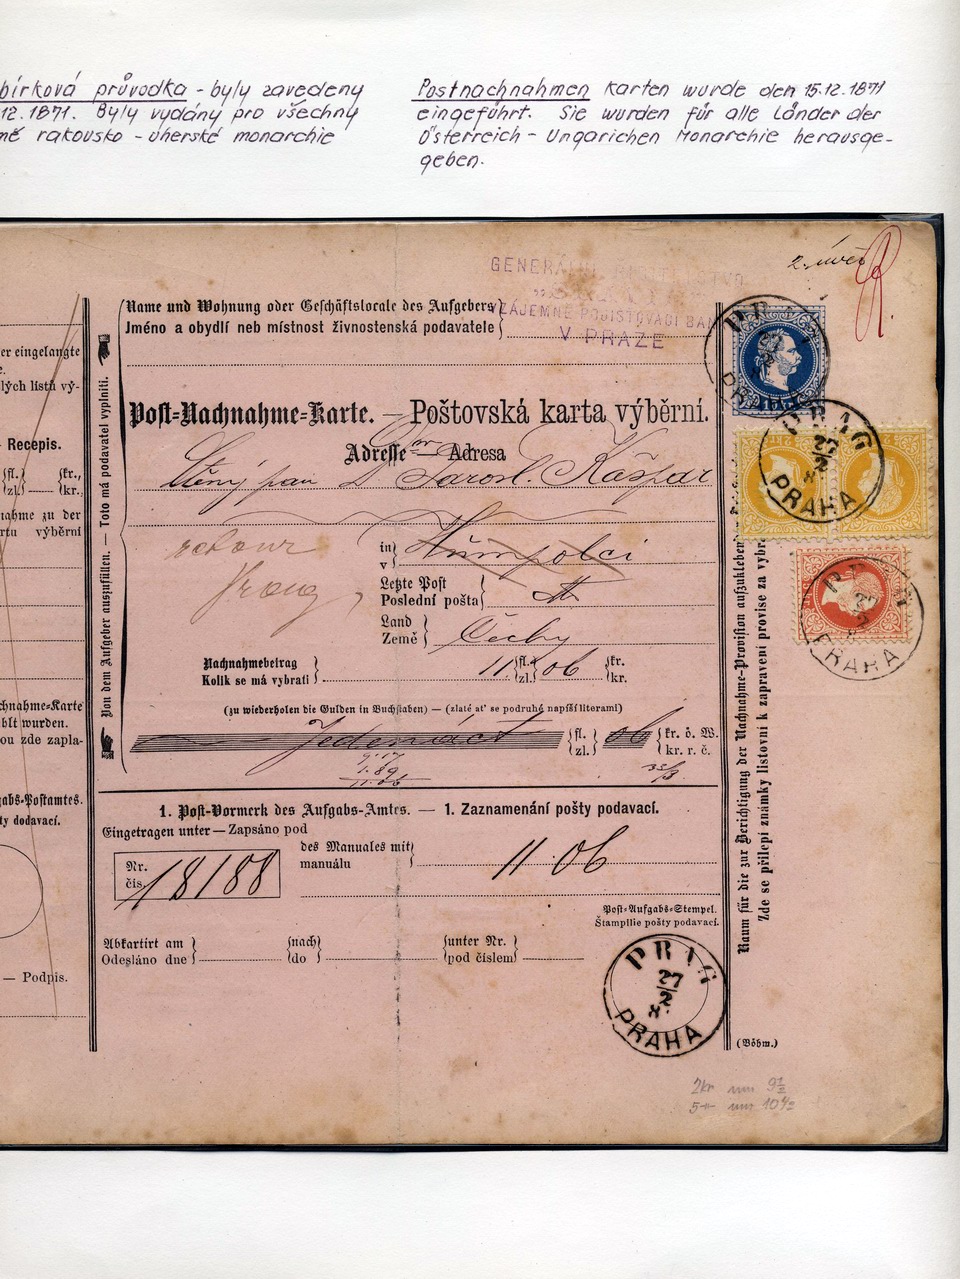 bírková průvodka - byly zavedeny
12.1871. Byly vydány pro všechny
mě rakousko - uherské monarchie
Postnachnahmen Karten wurde den 15.12.1871
eingeführt. Sie wurden für alle Länder der
Österreich - Ungarichen Monarchie herausge-
geben.
2.
GENERÁLNÍ ŘEDITELSTVO
VZÁJEMNÉ POJIŠŤOVACÍ BAN
V PRAZE
Name und Wohnung oder Geschäftslocale des Aufgebers
Jméno a obydlí neb místnost živnostenská podavatele
Post=Nachnahme=Karte. — Poštovská karta výběrní.
Adresse — Adresa
pan Jarosl. Kašpar
retour
Prag
in
v
Humpolci
Letzte Post
Poslední pošta
Land
Země
Čechy
Nachnahmebetrag
Kolik se má vybrati
11 fl. zl. 06 kr. kr.
(zu wiederholen die Gulden in Buchstaben) — (zlaté ať se podruhé napíší literami)
Jedenáct fl. zl. 06 kr. ö. W. kr. r. č.
9.17
1.89
11.06
1. Post=Vormerk des Aufgabs=Amtes. — 1. Zaznamenání pošty podavací.
Eingetragen unter — Zapsáno pod
Nr.
čís.
18188
des Manuales mit
manuálu
11 06
Post=Aufgabs=Stempel.
Štampilie pošty podavací.
Abkartirt am
Odesláno dne
nach
do
unter Nr.
pod číslem
PRAG
27
2
PRAHA
Von dem Aufgeber auszufüllen. — Toto má podavatel vyplniti.
er eingelangte
e.
lých listů vý-
- Recepis.
fl.
zl.
kr.,
kr.,
ahme zu der
rtu výběrní
chnahme=Karte
hlt wurden.
ou zde zapla-
gabs=Postamtes.
ty dodavací.
— Podpis.
PRAG
PRAHA
PRAG
27
2
PRAHA
PRAG
27
2
PRAHA
2 KR
2 KR
Raum für die zur Berichtigung der Nachnahme=Provision aufzukleben
Zde se přilepí známky listovní k zapravení provise za vybra
(Böhm.)
2kr 9½
5 10½